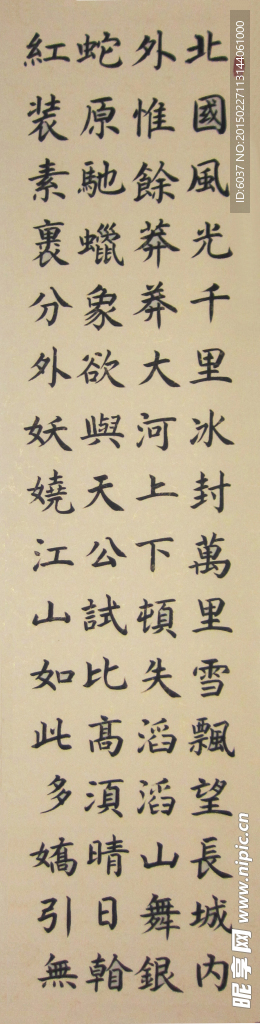 北國風光千里冰封萬里雪飄望長城内
外惟餘莽莽大河上下頓失滔滔山舞銀
蛇原馳蠟象欲與天公試比髙須晴日
紅装素裹分外妖嬈江山如此多嬌引無
ID:6037 NO:20150227113144061000
昵享网 www.nipic.cn